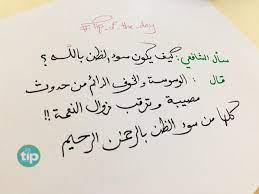 #Tip_of_the_day
سأل الشافعي: كيف يكون سوء الظن بالله؟
قال: الوسوسة والخوف الدائم من حدوث
مصيبة وترقب زوال النعمة!!
كلها من سوء الظن بالرحمن الرحيم
tip